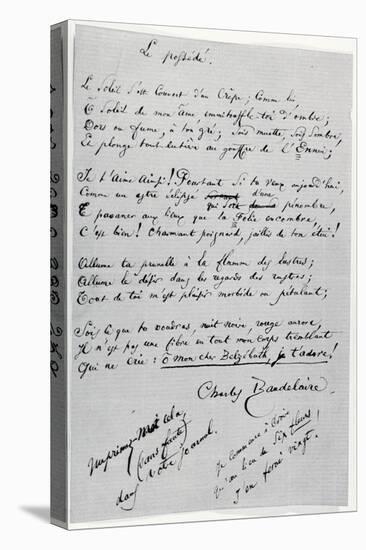 Le possédé.
Le Soleil s'est couvert d'un Crêpe ; Comme lui,
O Soleil de mon âme, emmitouffle-toi d'ombre ;
Dors ou fume, à ton gré ; Sois muette, Sois Sombre,
Et plonge tout entière au gouffre de l'Ennui ;
Je t'aime Ainsi ! Pourtant Si tu veux aujourd'hui,
Comme un astre éclipsé qui sort d'une pénombre,
Te pavaner aux lieux que la Folie encombre,
C'est bien ! Charmant poignard, jaillis de ton étui !
Allume ta prunelle à la flamme des lustres ;
Allume le désir dans les regards des rustres ;
Tout de toi m'est plaisir, morbide ou pétulant ;
Sois ce que tu voudras, nuit noire, rouge aurore,
Il n'est pas une fibre en tout mon corps tremblant
Qui ne crie : O mon cher Belzébuth, je t'adore !
Charles Baudelaire
Imprimez-moi cela
Sans faute
dans votre journal.
Je commence à croire
qu'au lieu de Six fleurs,
j'en ferai vingt.